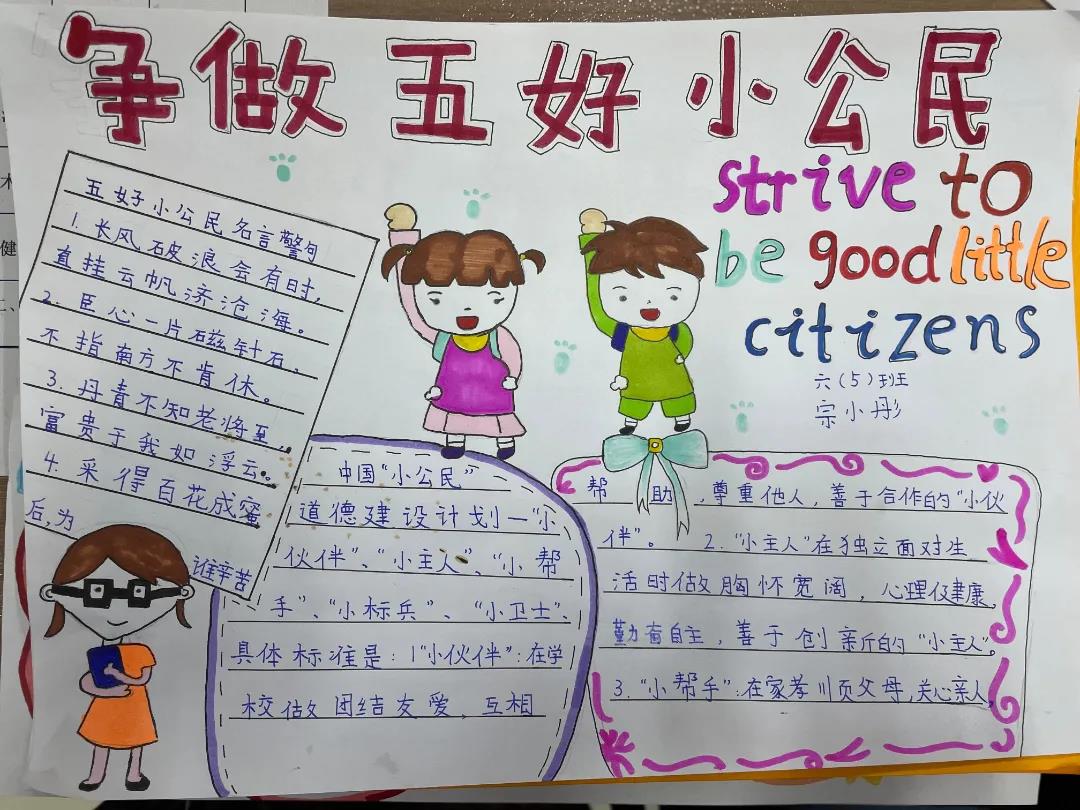 争做五好小公民
strive to
be good little
citizens
六(5)班
宗小彤
五好小公民名言警句
1. 长风破浪会有时,
直挂云帆济沧海。
2. 臣心一片磁针石、
不指南方不肯休。
3. 丹青不知老将至,
富贵于我如浮云。
4. 采得百花成蜜
后,为
谁辛苦
中国“小公民”
道德建设计划一“小
伙伴”、“小主人”、“小帮
手”、“小标兵”、“小卫士”、
具体标准是:1“小伙伴”:在学
校做团结友爱、互相
帮助,尊重他人,善于合作的“小伙
伴”。 2.“小主人”在独立面对生
活时做胸怀宽阔,心理健康,
勤奋自主,善于创新的“小主人”。
3.“小帮手”:在家孝顺父母,关心亲人,